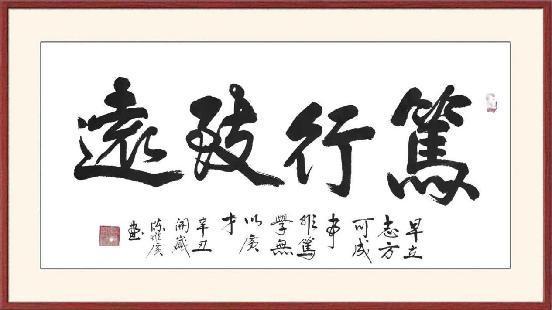 篤行致遠
早立
志方
可成
事
非篤
學無
以廣
才
辛丑
開歲
書